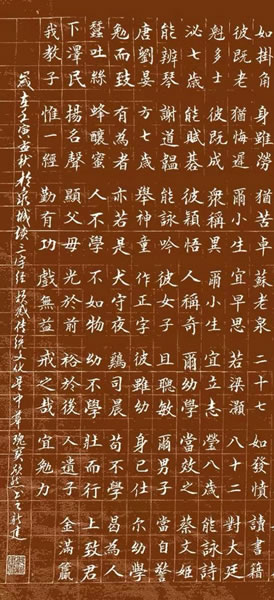 如掛角身雖勞猶苦辛蘇老泉二十七始發憤讀書籍
彼既老猶悔遲爾小生宜早思若梁灝八十二對大廷
魁多士彼既成衆稱異爾小生宜立志瑩八歲能詠詩
泌七歲能賦碁彼穎悟人稱奇爾幼學當效之蔡文姬
能辨琴謝道韞能詠吟彼女子且聰敏爾男子當自警
唐劉晏方七歲舉神童作正字彼雖幼身已仕尔幼學
勉而致有為者亦若是犬守夜鷄司晨苟不學曷為人
蠶吐絲蜂釀蜜人不學不如物幼不學壯而行上致君
下澤民揚名聲顯父母光於前裕於後人遺子金滿籯
我教子惟一經勤有功戲無益戒之哉宜勉力
歲在壬寅孟秋於泉城 三字經 傳統文化是中華瑰寶